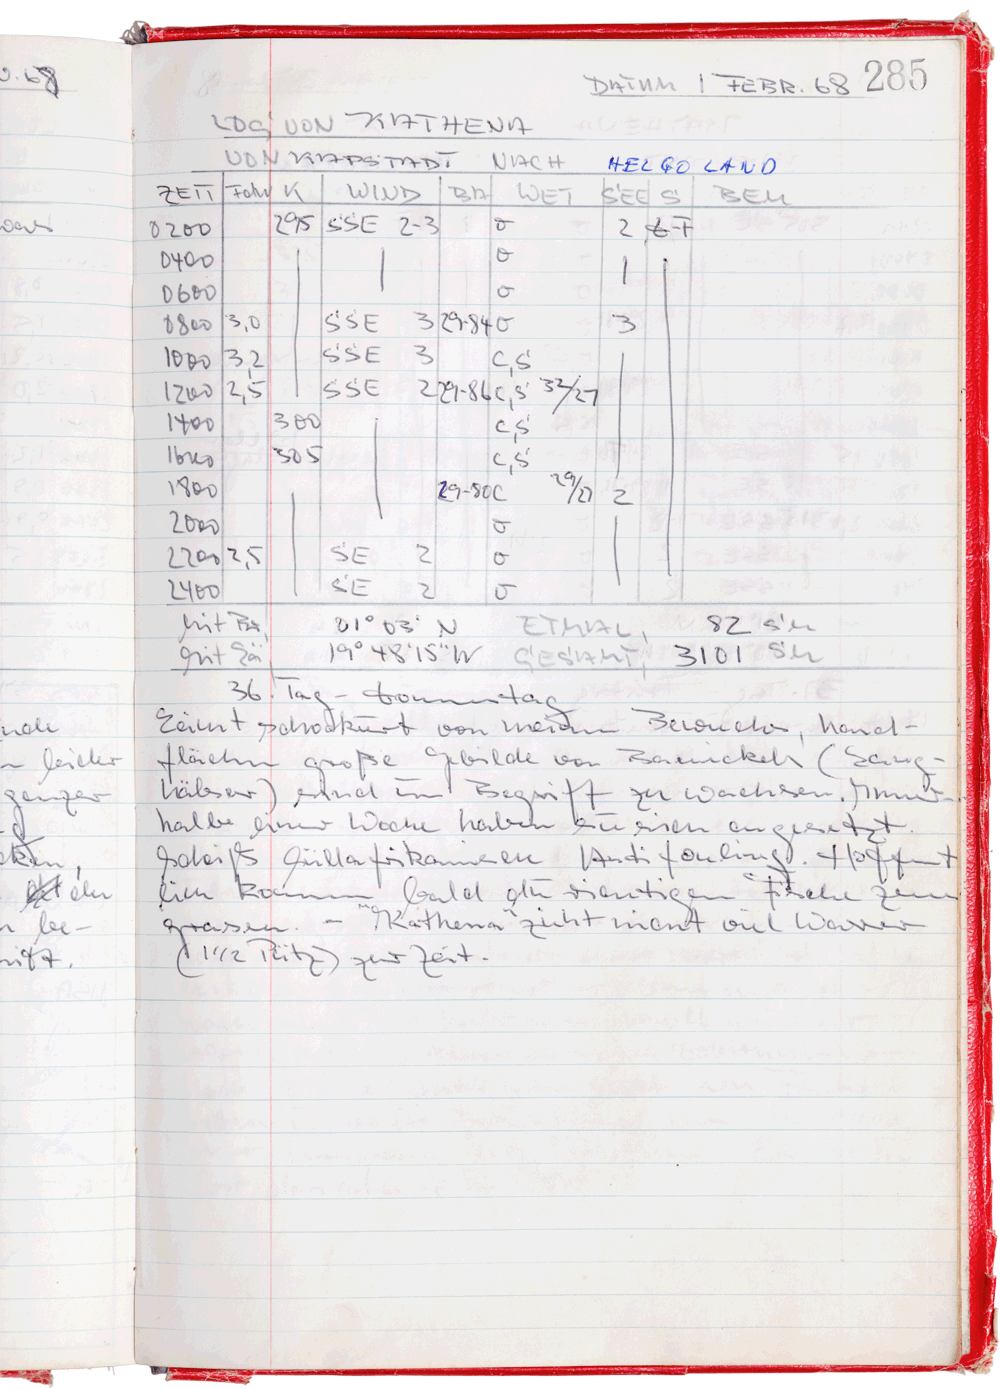 0.68
DATUM 1 FEBR. 68 285
LOG VON KATHENA
VON KAPSTADT NACH HELGOLAND
ZEIT Fahr K WIND BA WET SEE S BEM
0200 295 SSE 2-3 σ 2 F
0400 σ
0600 σ
0800 3,0 SSE 3 29-84 σ 3
1000 3,2 SSE 3 C,S
1200 2,5 SSE 2 29-86 C,S 32/27
1400 300 C,S
1600 305 C,S
1800 29-80 C 29/27 2
2000 σ
2200 2,5 SE 2 σ
2400 SE 2 σ
Mit Br, 01° 03' N ETMAL, 82 SM
Mit Lä 19° 48'15"W GESAMT, 3101 SM
36. Tag - Donnerstag
schockiert von meinem Besucher, hand-
flächen große Gebilde von Barnickels (Saug-
hälser) sind im Begriff zu wachsen. Inner-
n leider
halbe einer Woche haben sie sich angesetzt.
ganzer
Südafrikanischen Antifouling. Hoffent
lich kommen bald die richtigen Fische zum
n be-
grasen. - "Kathena" zieht nicht viel Wasser
(1 1/2 Pütz) zur Zeit.